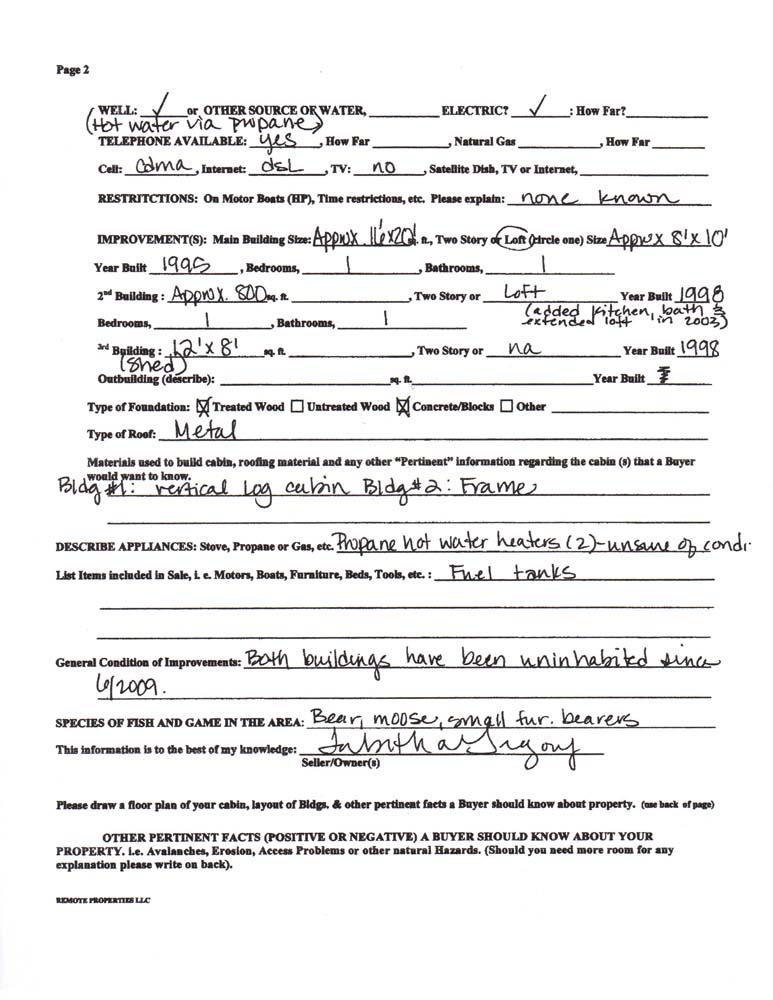 Page 2
WELL: ✓ or OTHER SOURCE OR WATER, ELECTRIC? ✓ : How Far?
(Hot water via propane)
TELEPHONE AVAILABLE: yes , How Far , Natural Gas , How Far
Cell: Cdma , Internet: dsL , TV: no , Satellite Dish, TV or Internet,
RESTRITCTIONS: On Motor Boats (HP), Time restrictions, etc. Please explain: none known
IMPROVEMENT(S): Main Building Size: Approx 16'x20' sq. ft., Two Story or Loft (circle one) Size Approx 8'x10'
Year Built 1995 , Bedrooms, 1 , Bathrooms, 1
2nd Building : Approx. 800 sq. ft. , Two Story or Loft Year Built 1998
(added kitchen, bath &
Bedrooms, 1 , Bathrooms, 1 extended loft in 2003)
3rd Building : 12'x8' sq. ft. , Two Story or na Year Built 1998
(Shed)
Outbuilding (describe): sq. ft. Year Built
Type of Foundation: ☒ Treated Wood ☐ Untreated Wood ☒ Concrete/Blocks ☐ Other
Type of Roof: Metal
Materials used to build cabin, roofing material and any other “Pertinent” information regarding the cabin (s) that a Buyer
would want to know.
Bldg #1: vertical Log cabin Bldg #2: Frame
DESCRIBE APPLIANCES: Stove, Propane or Gas, etc. Propane hot water heaters (2)-unsure of condi.
List Items included in Sale, i. e. Motors, Boats, Furniture, Beds, Tools, etc. : Fuel tanks
General Condition of Improvements: Both buildings have been uninhabited since
6/2009.
SPECIES OF FISH AND GAME IN THE AREA: Bear, moose, small fur. bearers
This information is to the best of my knowledge:
Seller/Owner(s)
Please draw a floor plan of your cabin, layout of Bldgs. & other pertinent facts a Buyer should know about property. (use back of page)
OTHER PERTINENT FACTS (POSITIVE OR NEGATIVE) A BUYER SHOULD KNOW ABOUT YOUR
PROPERTY. i.e. Avalanches, Erosion, Access Problems or other natural Hazards. (Should you need more room for any
explanation please write on back).
REMOTE PROPERTIES LLC